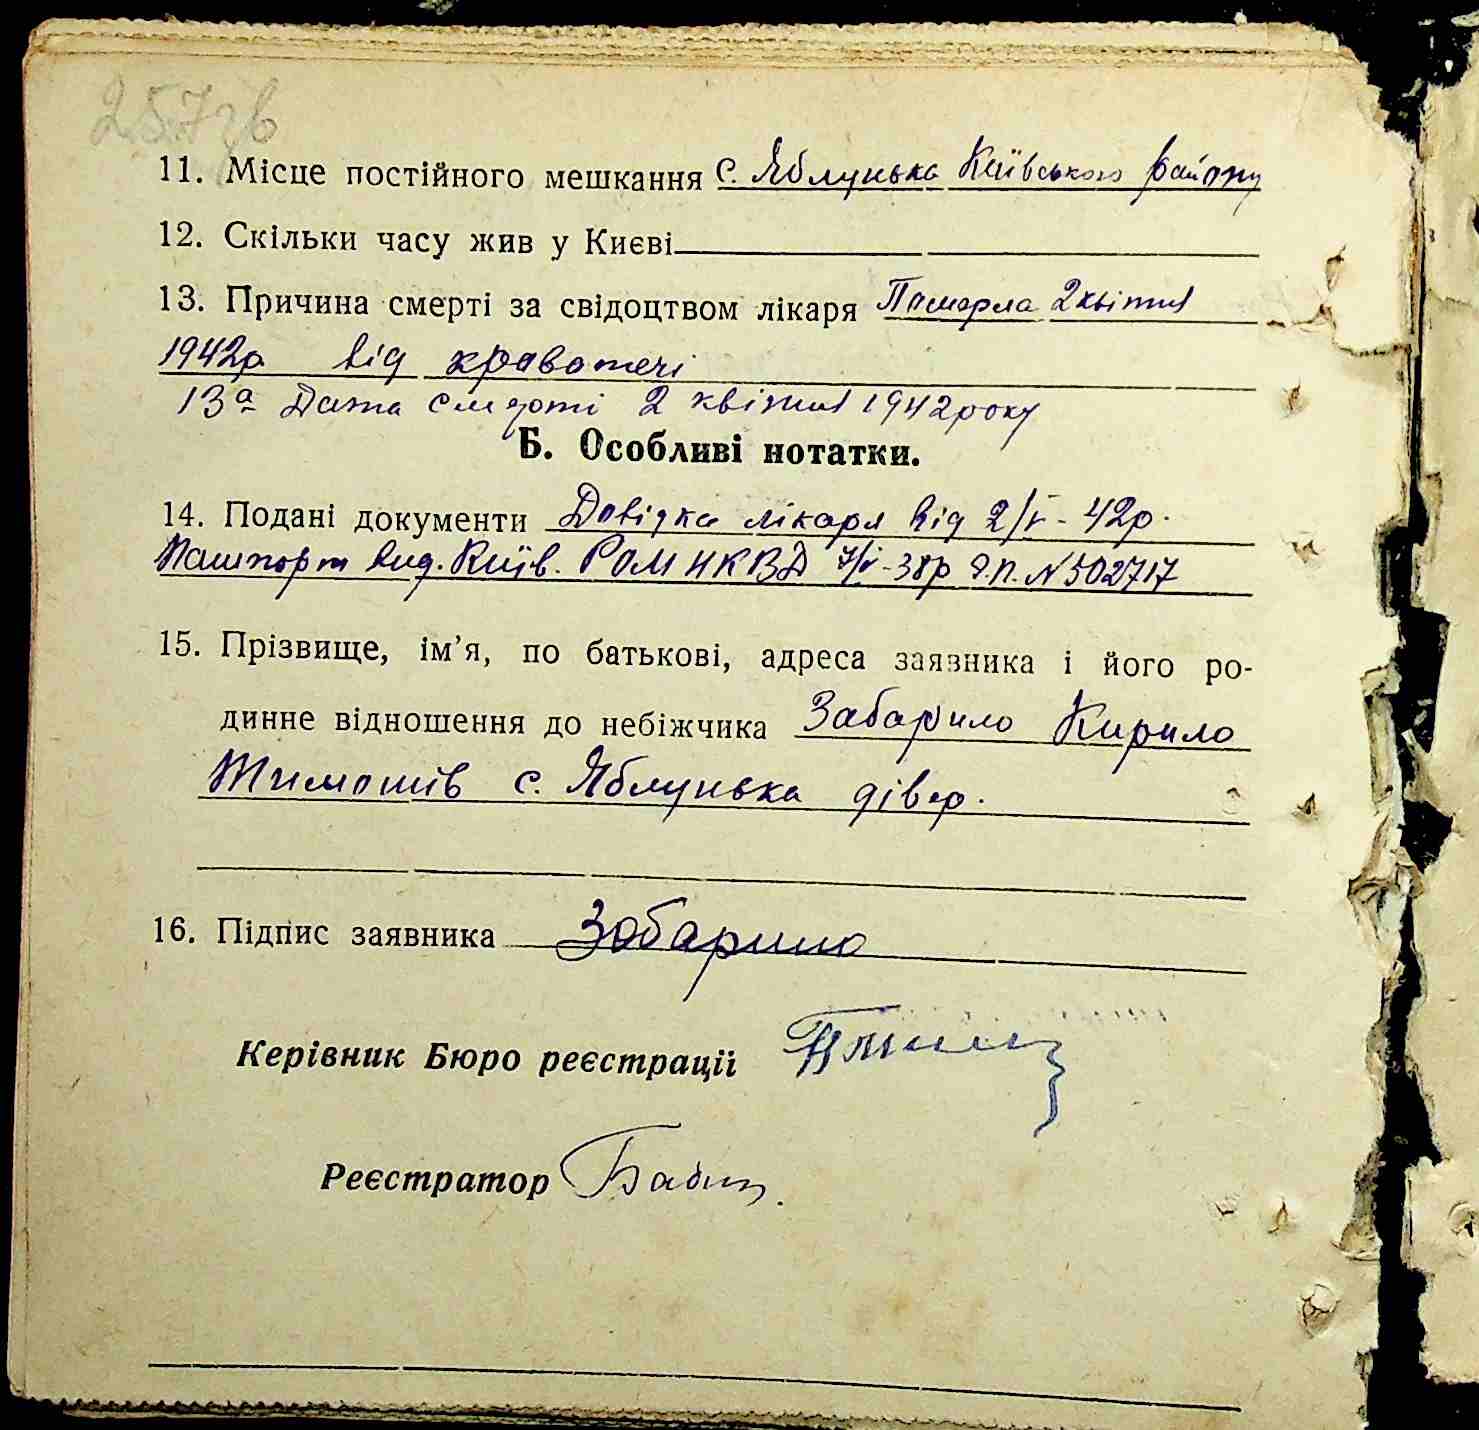 257зв
11. Місце постійного мешкання с. Яблунька Київського району
12. Скільки часу жив у Києві
13. Причина смерті за свідоцтвом лікаря Померла 2 квітня
1942р від кровотечі
13а Дата смерті 2 квітня 1942 року
Б. Особливі нотатки.
14. Подані документи Довідка лікаря від 2/IV-42р.
Пашпорт вид. Київ. РОМ НКВД 7/V-38р N 502717
15. Прізвище, ім’я, по батькові, адреса заявника і його ро-
динне відношення до небіжчика Забарило Кирило
Тимошів с. Яблунька дівер.
16. Підпис заявника Забарило
Керівник Бюро реєстрації
Реєстратор